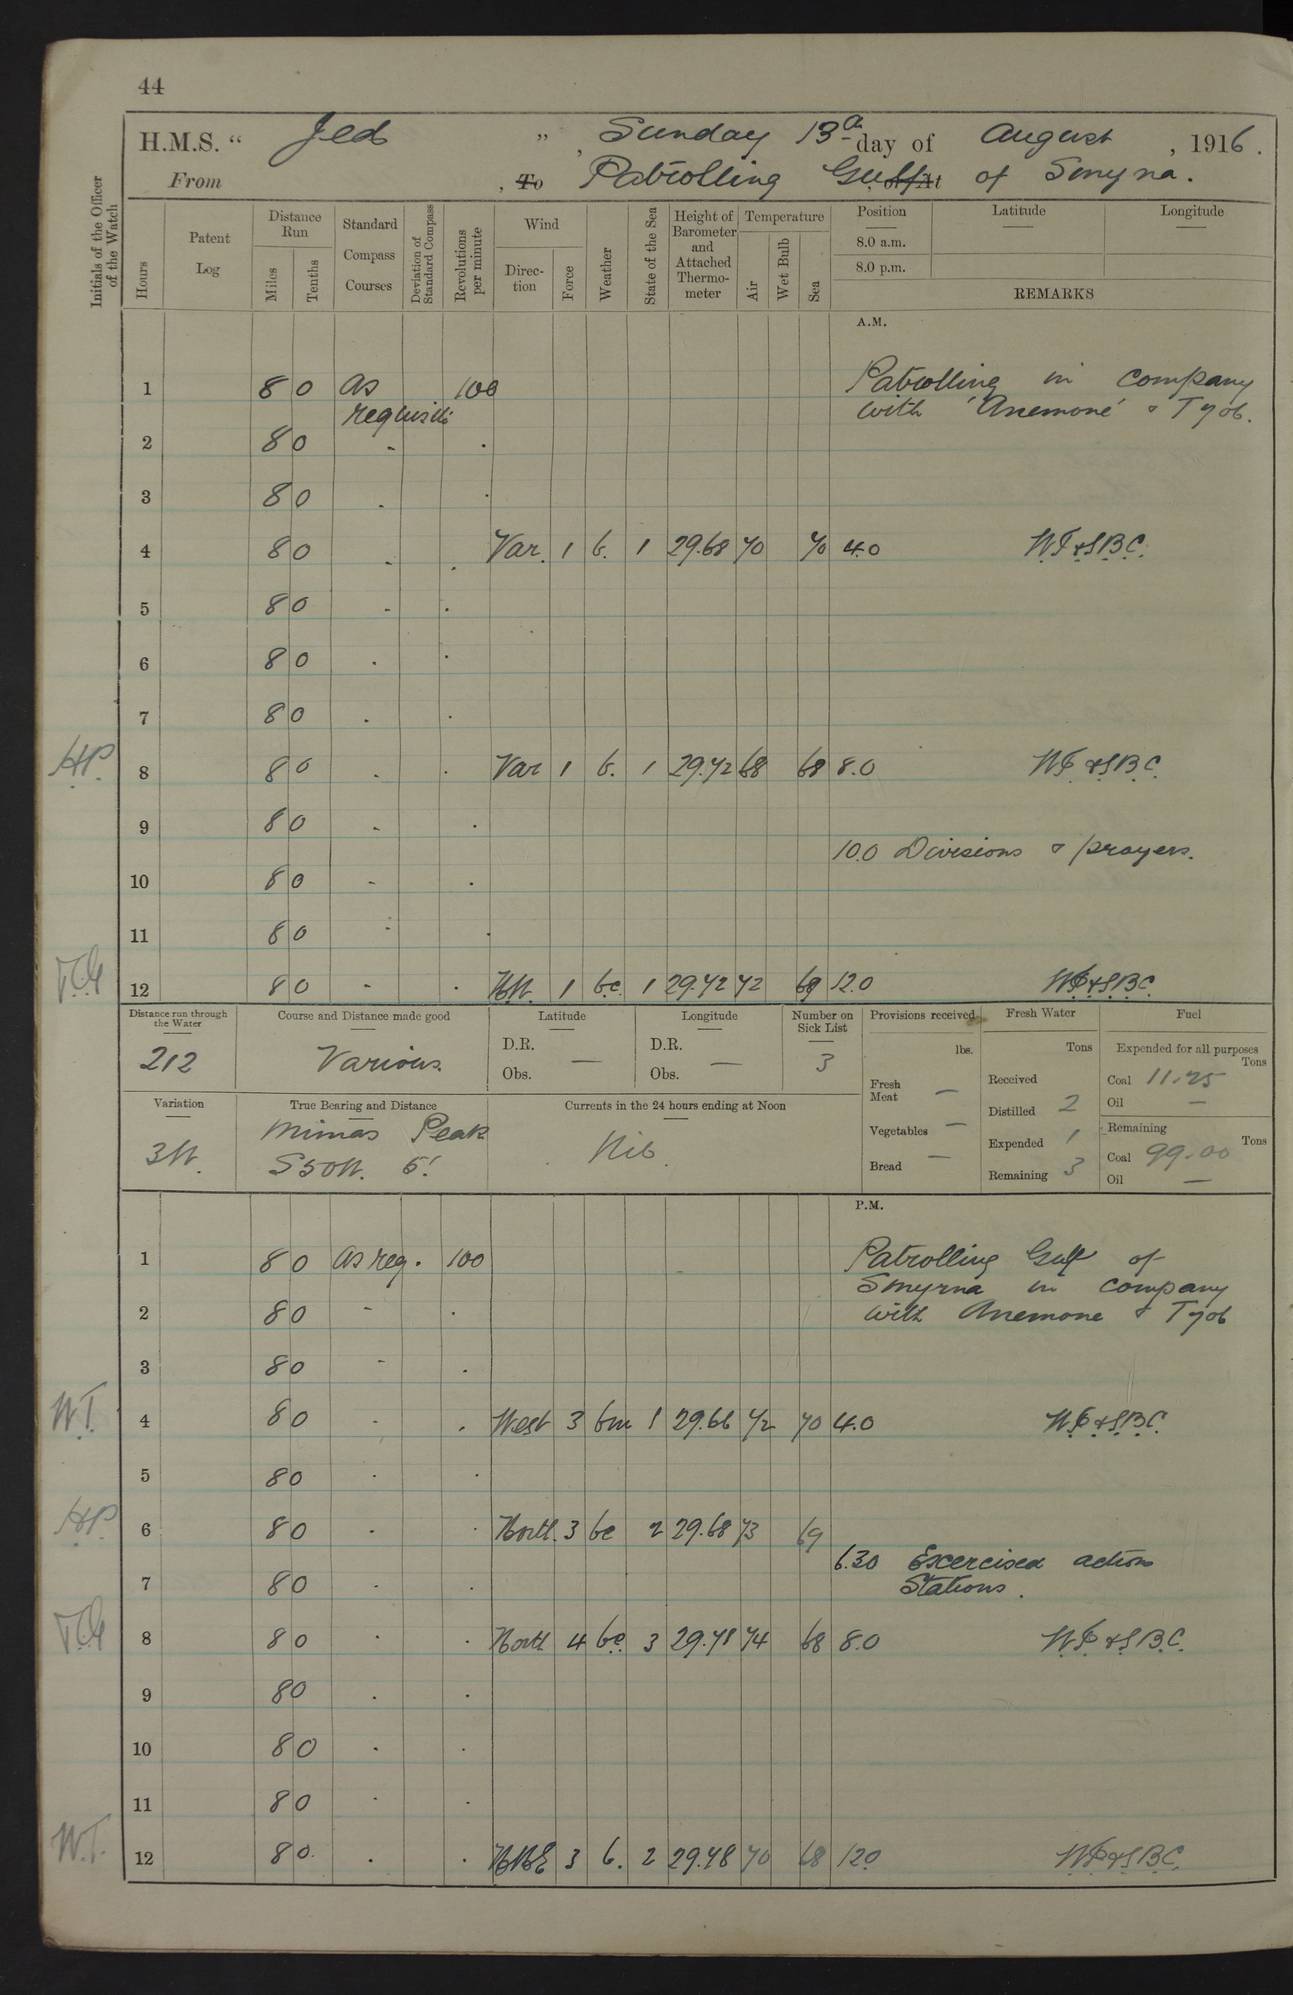 44
H.M.S. “ Jed ” , Sunday 13th day of August , 1916.
From , To Patrolling Gulf or At of Smyrna.
Initials of the Officer of the Watch
Hours
Patent Log
Distance Run
Miles
Tenths
Standard Compass Courses
Deviation of Standard Compass
Revolutions per minute
Wind
Direction
Force
Weather
State of the Sea
Height of Barometer and Attached Thermometer
Temperature
Air
Wet Bulb
Sea
Position
8.0 a.m.
8.0 p.m.
Latitude
Longitude
REMARKS
A.M.
1 8 0 As requisite 100 Patrolling in company
with 'Anemone' & T 706.
2 8 0 - .
3 8 0 . .
4 8 0 . . Var. 1 b. 1 29.68 70 70 4.0 W.T. & S.B.C.
5 8 0 - .
6 8 0 . .
7 8 0 . .
HP. 8 8 0 . . Var 1 b. 1 29.72 68 68 8.0 W.T. & S.B.C.
9 8 0 - .
10.0 Divisions & prayers.
10 8 0 - .
11 8 0 - .
12 8 0 - . 1 bc. 1 29.72 72 69 12.0 W.T. & S.B.C.
Distance run through the Water
212
Course and Distance made good
Various
Latitude
D.R.
Obs. —
Longitude
D.R.
Obs. —
Number on Sick List
3
Provisions received
lbs.
Fresh Meat —
Vegetables —
Bread —
Fresh Water
Tons
Received
Distilled 2
Expended 1
Remaining 3
Fuel
Expended for all purposes
Tons
Coal 11.25
Oil —
Remaining
Tons
Coal 99.00
Oil —
Variation
3W.
True Bearing and Distance
Mimas Peak
S50W. 5'.
Currents in the 24 hours ending at Noon
Nil
P.M.
1 8 0 As req. 100 Patrolling Gulf of
Smyrna in company
2 8 0 - . with Anemone & T 706
3 8 0 - .
W.T. 4 8 0 . . West 3 bm 1 29.66 72 70 4.0 W.T. & S.B.C.
5 8 0 . .
HP. 6 8 0 . . North. 3 bc 2 29.68 73 69
6.30 Exercised action
Stations.
7 8 0 . .
8 8 0 . . North 4 bc. 3 29.71 74 68 8.0 W.T. & S.B.C.
9 8 0 . .
10 8 0 . .
11 8 0 . .
W.T. 12 8 0. . . NNE 3 b. 2 29.78 70 68 12.0 W.T. & S.B.C.